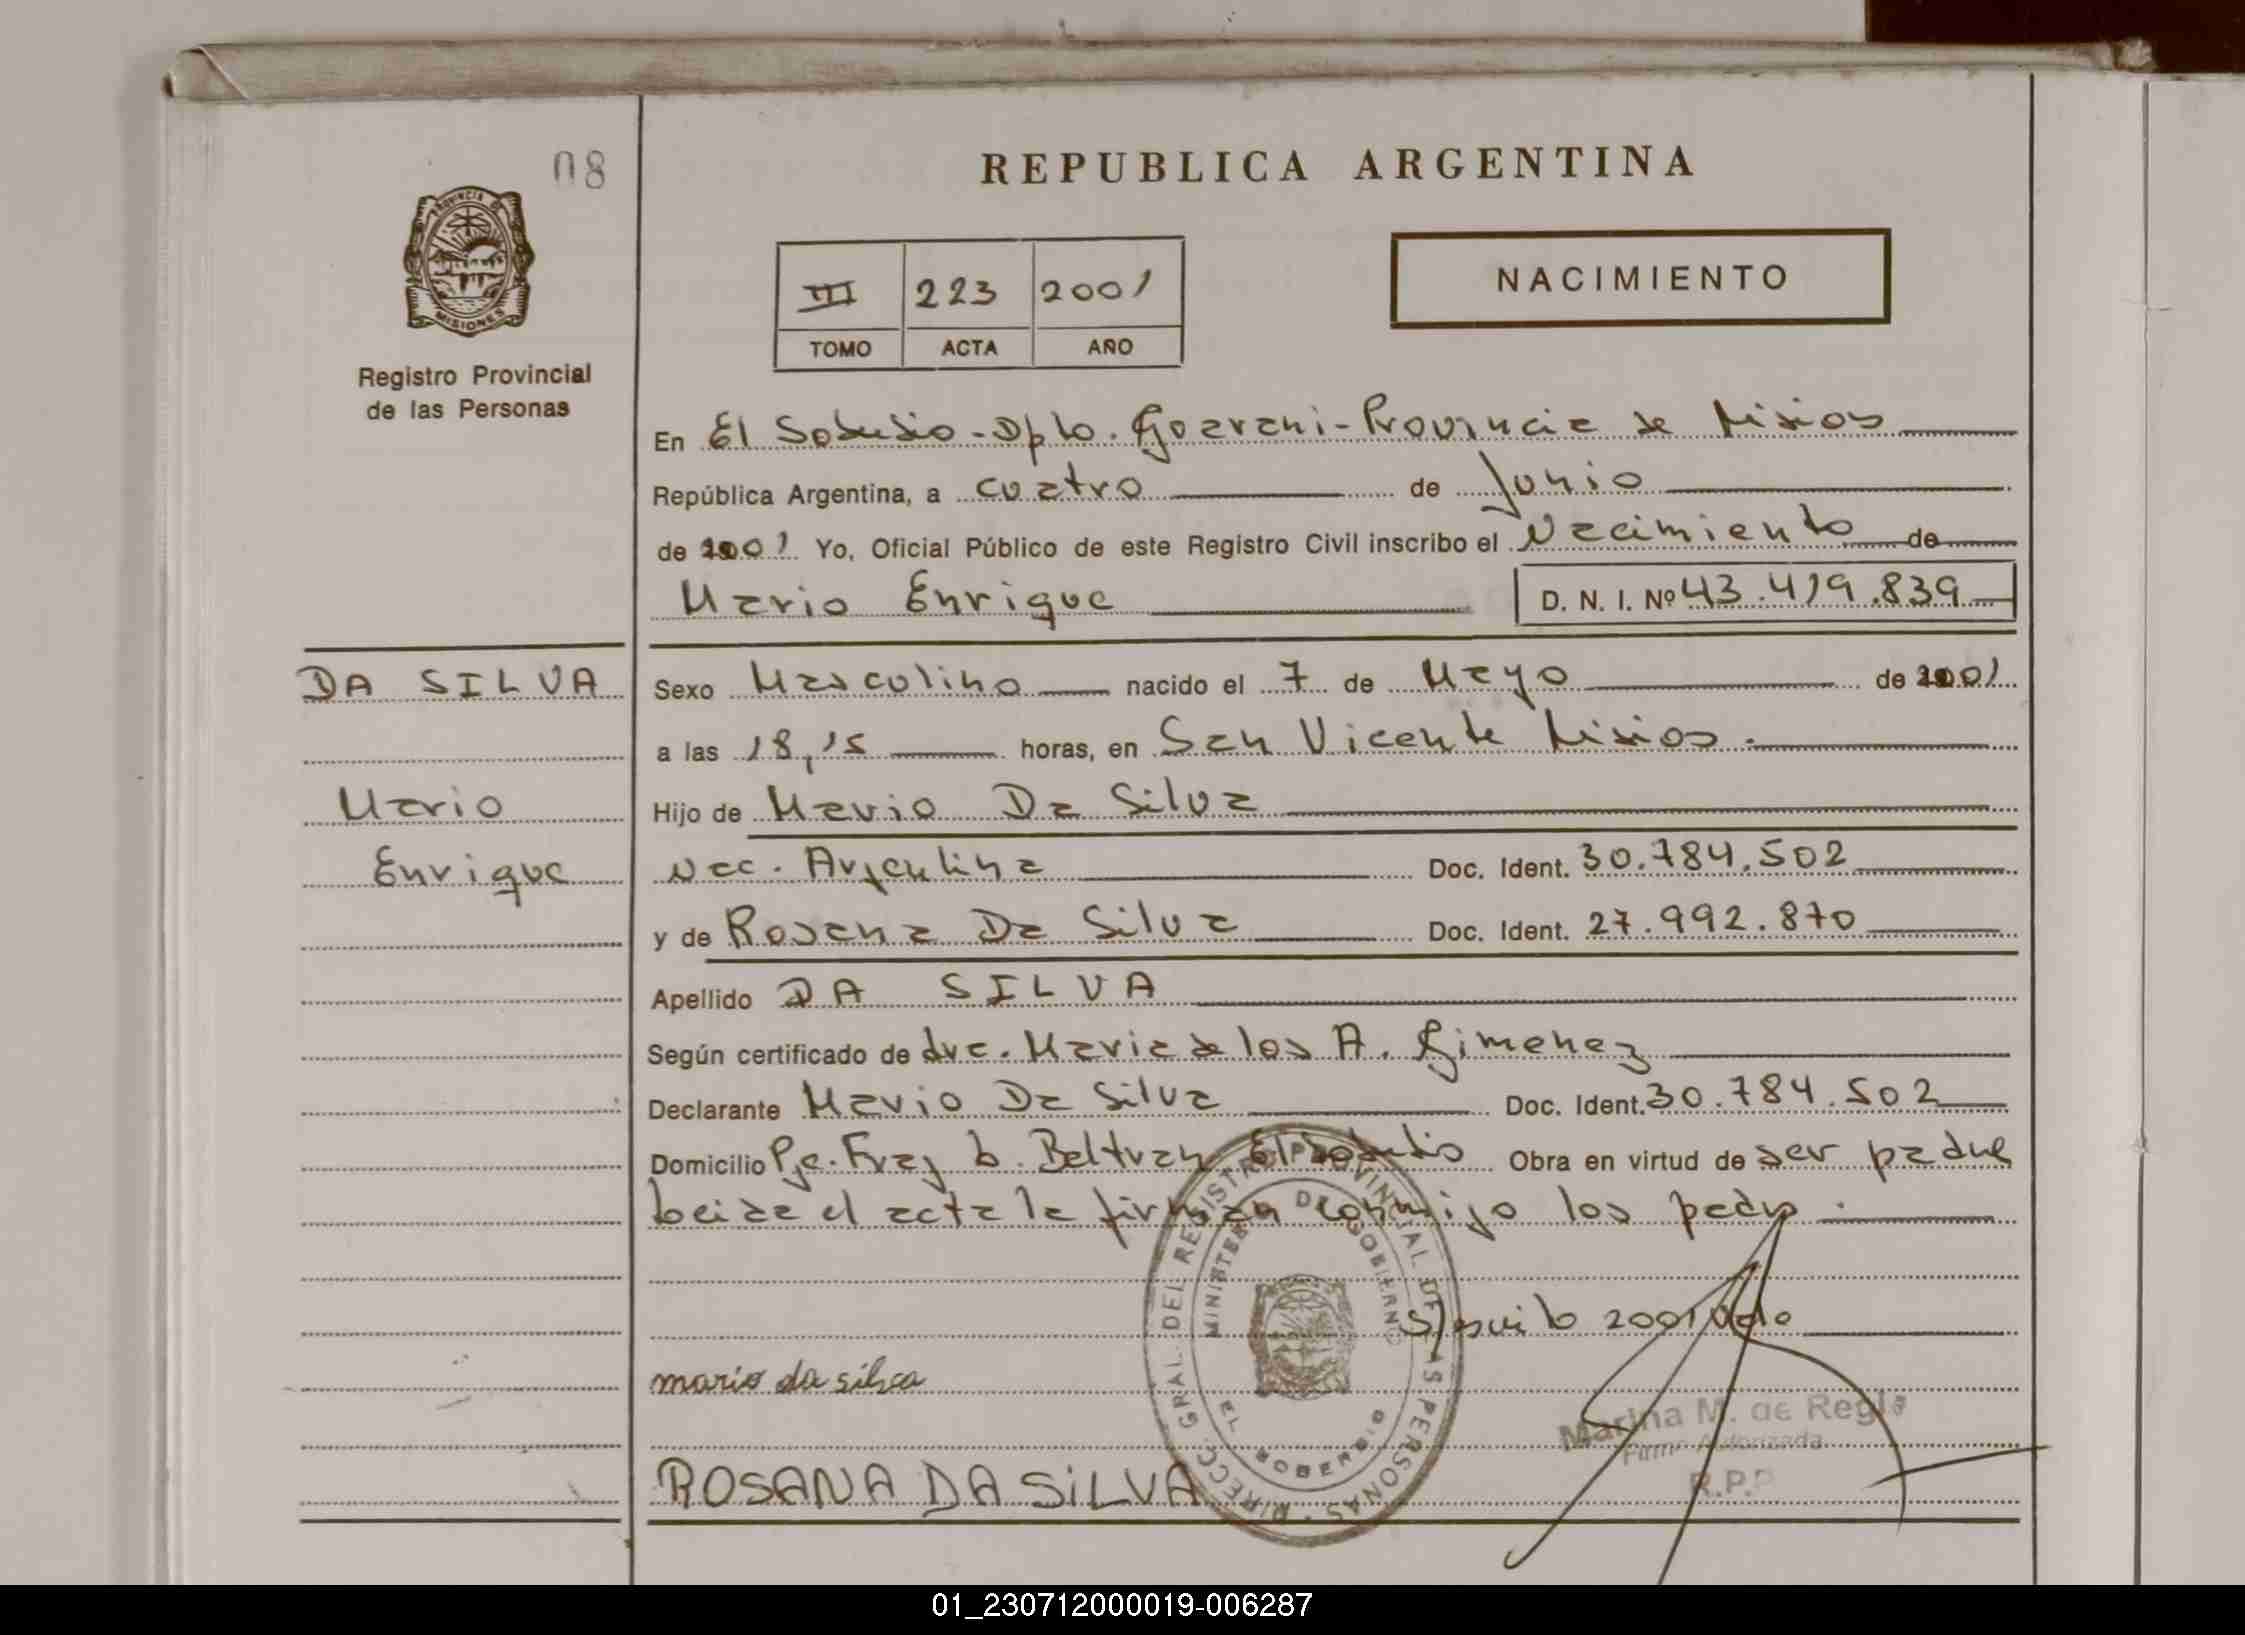 08
PROVINCIA DE
MISIONES
Registro Provincial
de las Personas
REPUBLICA ARGENTINA
III 223 2001
TOMO ACTA AÑO
NACIMIENTO
En El Soberbio - Dpto. Guarani - Provincia de Misiones
República Argentina, a cuatro de Junio
de 2001 Yo, Oficial Público de este Registro Civil inscribo el Nacimiento de
Mario Enrique D. N. I. Nº 43.419.839
DA SILVA
Mario
Enrique
Sexo Masculino nacido el 7 de Mayo de 2001
a las 18,15 horas, en San Vicente Misiones.
Hijo de Mario Da Silva
Nac. Argentina Doc. Ident. 30.784.502
y de Rosana Da Silva Doc. Ident. 27.992.870
Apellido DA SILVA
Según certificado de dra. Maria de los A. Gimenez
Declarante Mario Da Silva Doc. Ident. 30.784.502
Domicilio Pje. Fray L. Beltran El Soberbio Obra en virtud de ser padre
Leida el acta la firman conmigo los padres.
S/escrito 2001 Vale
mario da silva
ROSANA DA SILVA
DIRECC. GRAL. DEL REGISTRO PROVINCIAL DE LAS PERSONAS
MINISTERIO DE GOBIERNO
EL SOBERBIO
Marina M. de Regis
Firma Autorizada
R.P.P
01_230712000019-006287